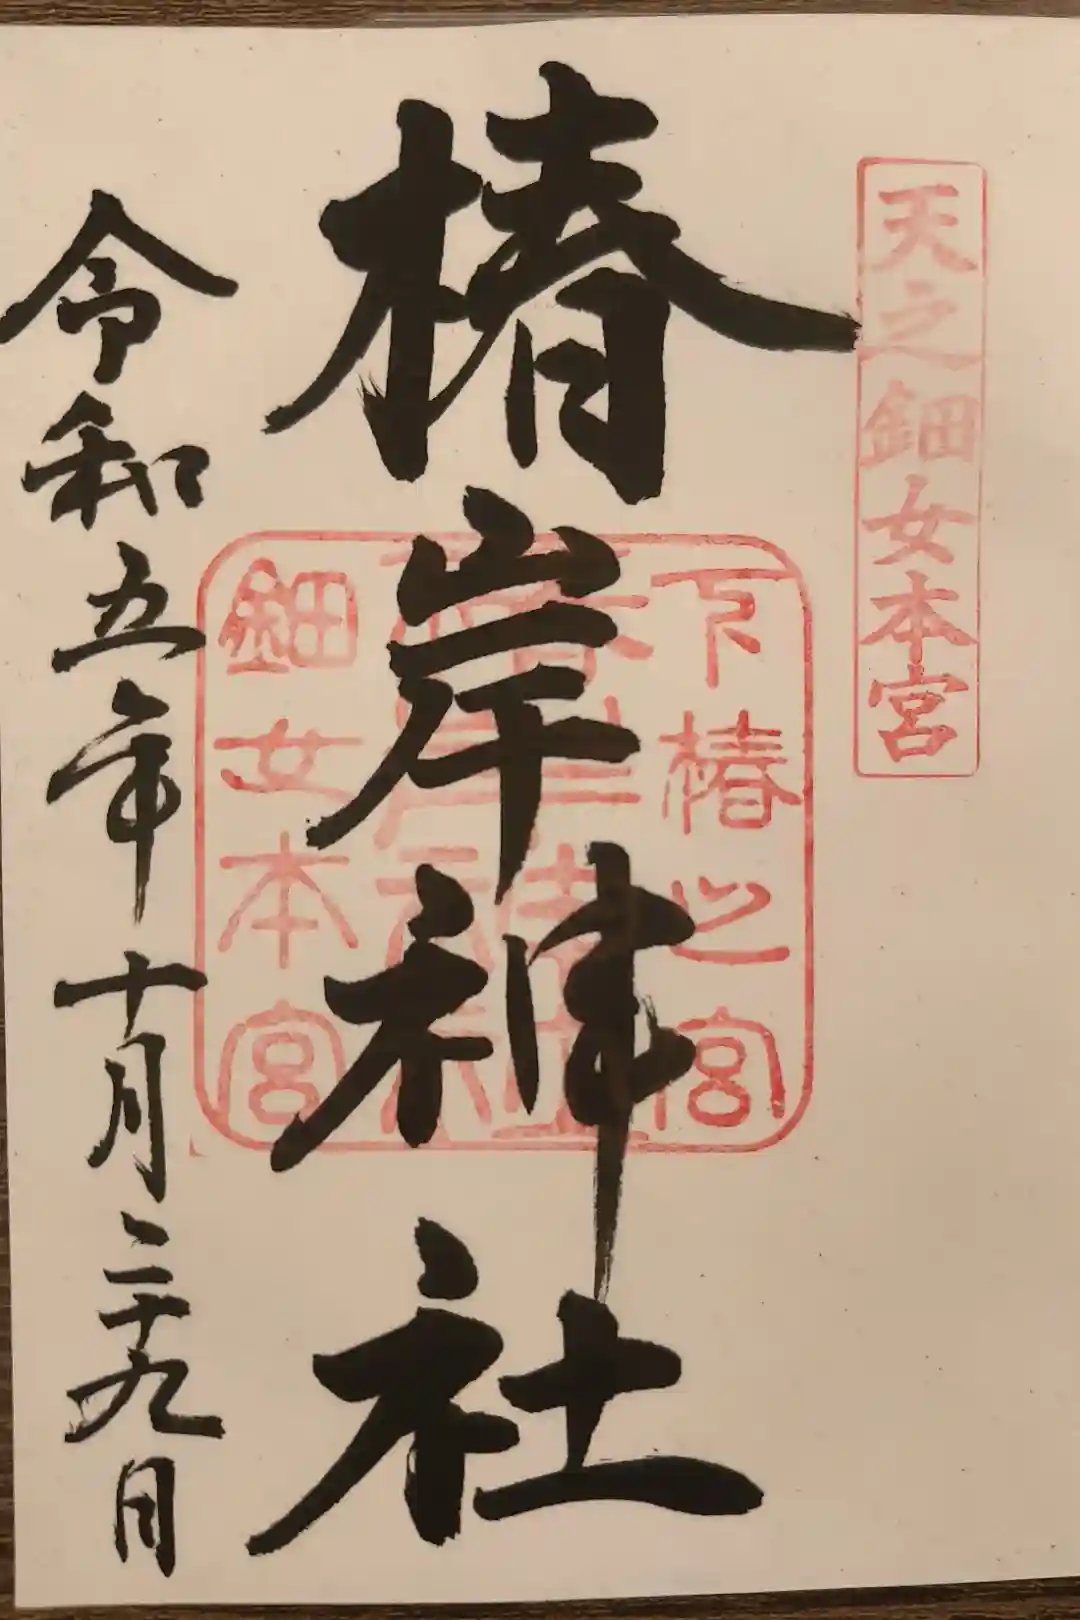 天之鈿女本宮
椿岸神社
下椿之宮
椿岸神社
鈿女本宮
令和五年十月二十九日